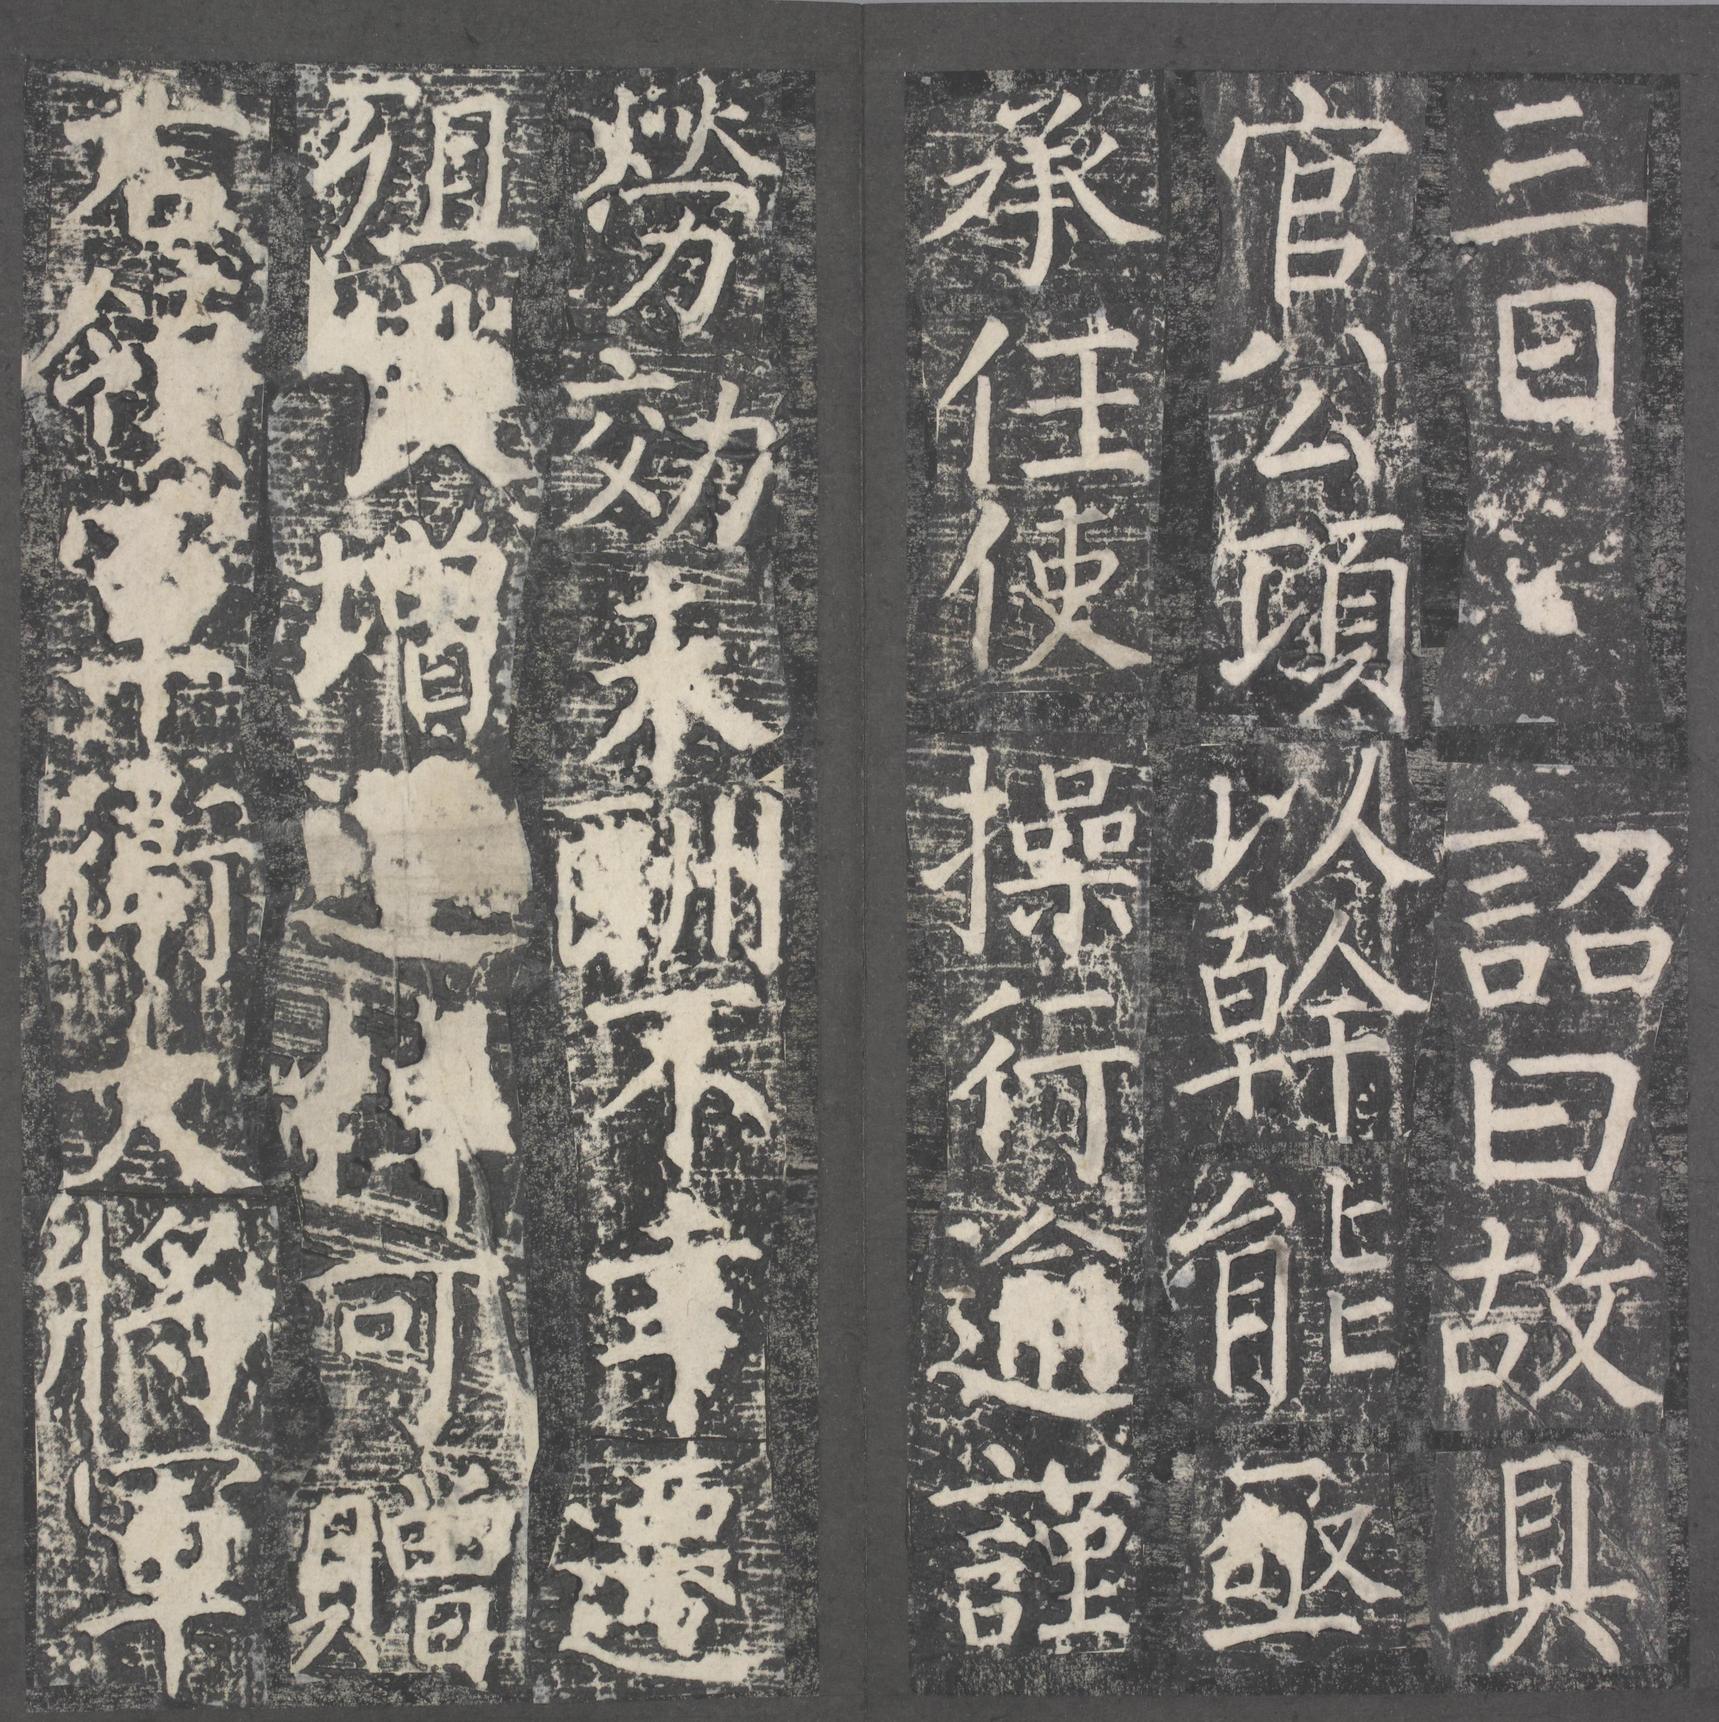 三日詔曰故具
官公頭以幹能亟
承任使操行逾謹
勞効未酬不幸遷
殂興增悼可贈
右領軍衛大將軍